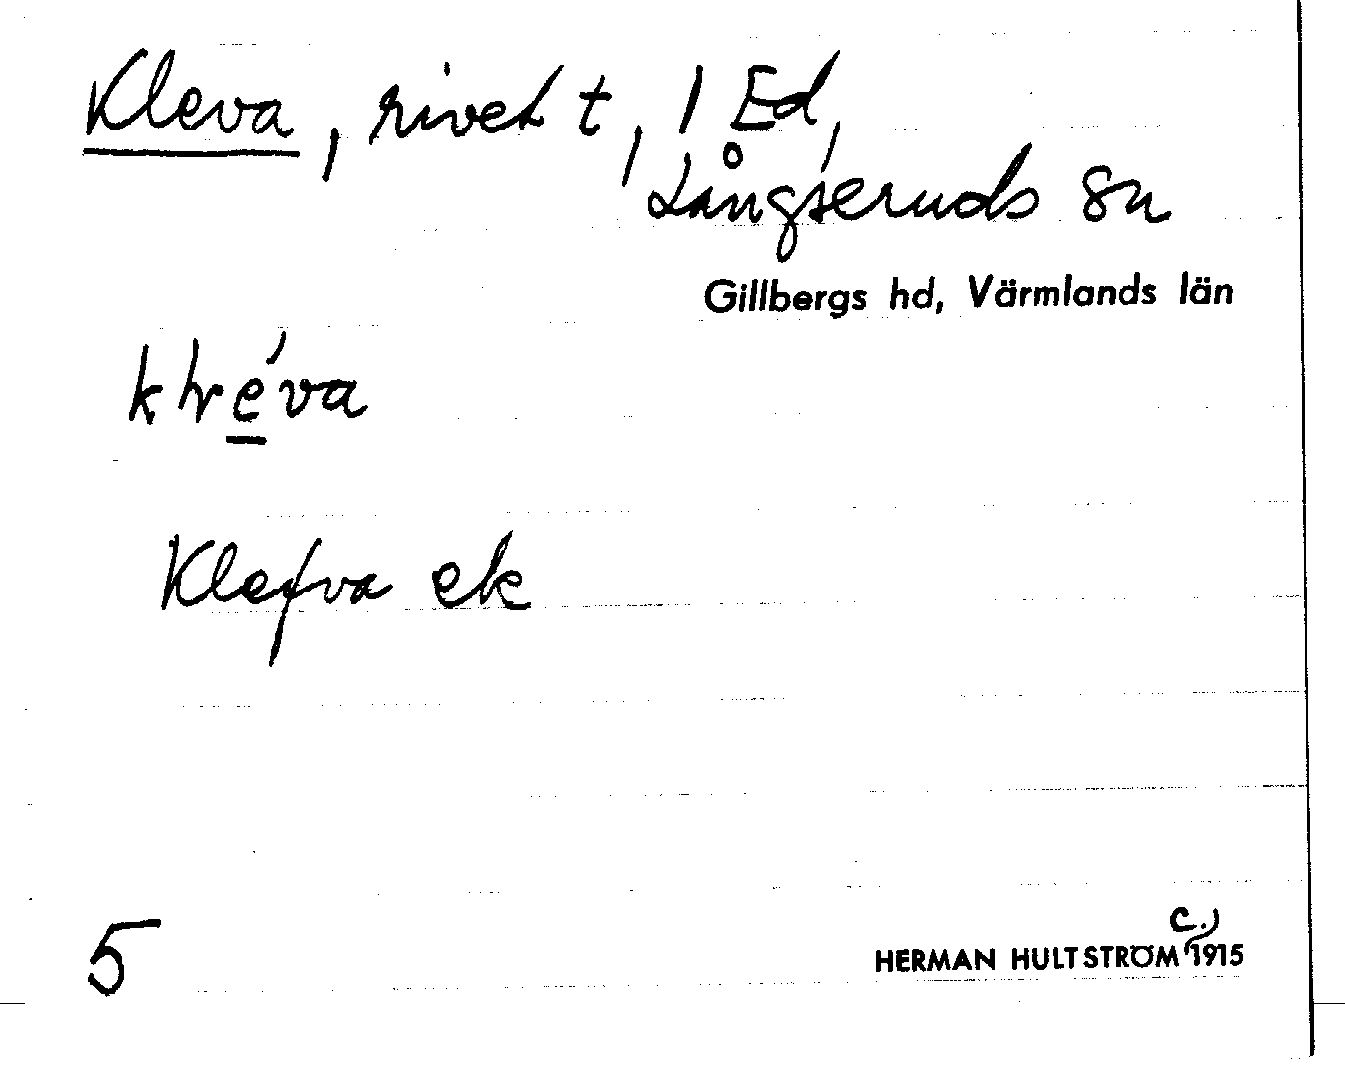 Kleva, rivet t, 1 Ed,
Långseruds sn
Gillbergs hd, Värmlands län
Klefva ek
5
c.
HERMAN HULTSTRÖM 1915